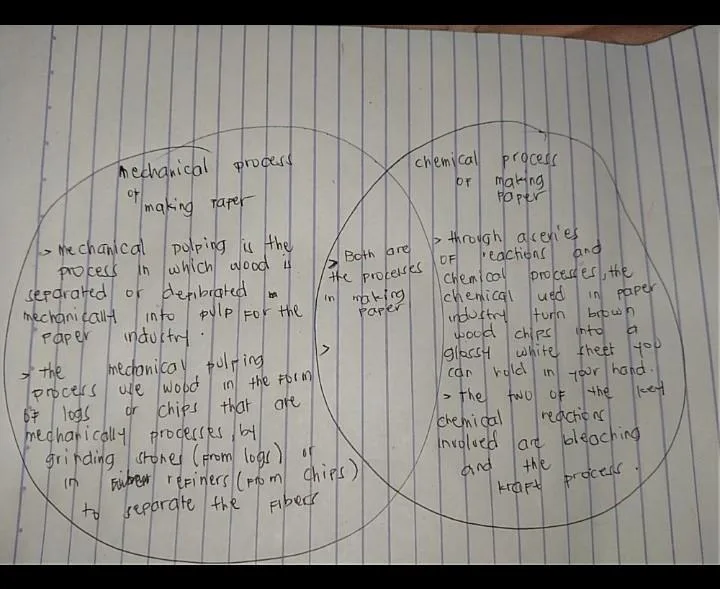 mechanical process
of
making Paper
> mechanical pulping is the
process in which wood is
separated or defibrated
mechanically into pulp for the
paper industry.
> the mechanical pulping
process use wood in the form
of logs or chips that are
mechanically processes, by
grinding stones (from logs) or
in refiners (from chips)
to separate the fibers
> Both are
the processes
in making
paper
>
chemical process
of making
paper
> through a series
of reactions and
chemical processes, the
chemical ued in paper
industry turn brown
wood chips into a
glossy white sheet you
can hold in your hand.
> the two of the key
chemical reactions
involved are bleaching
and the
kraft process.